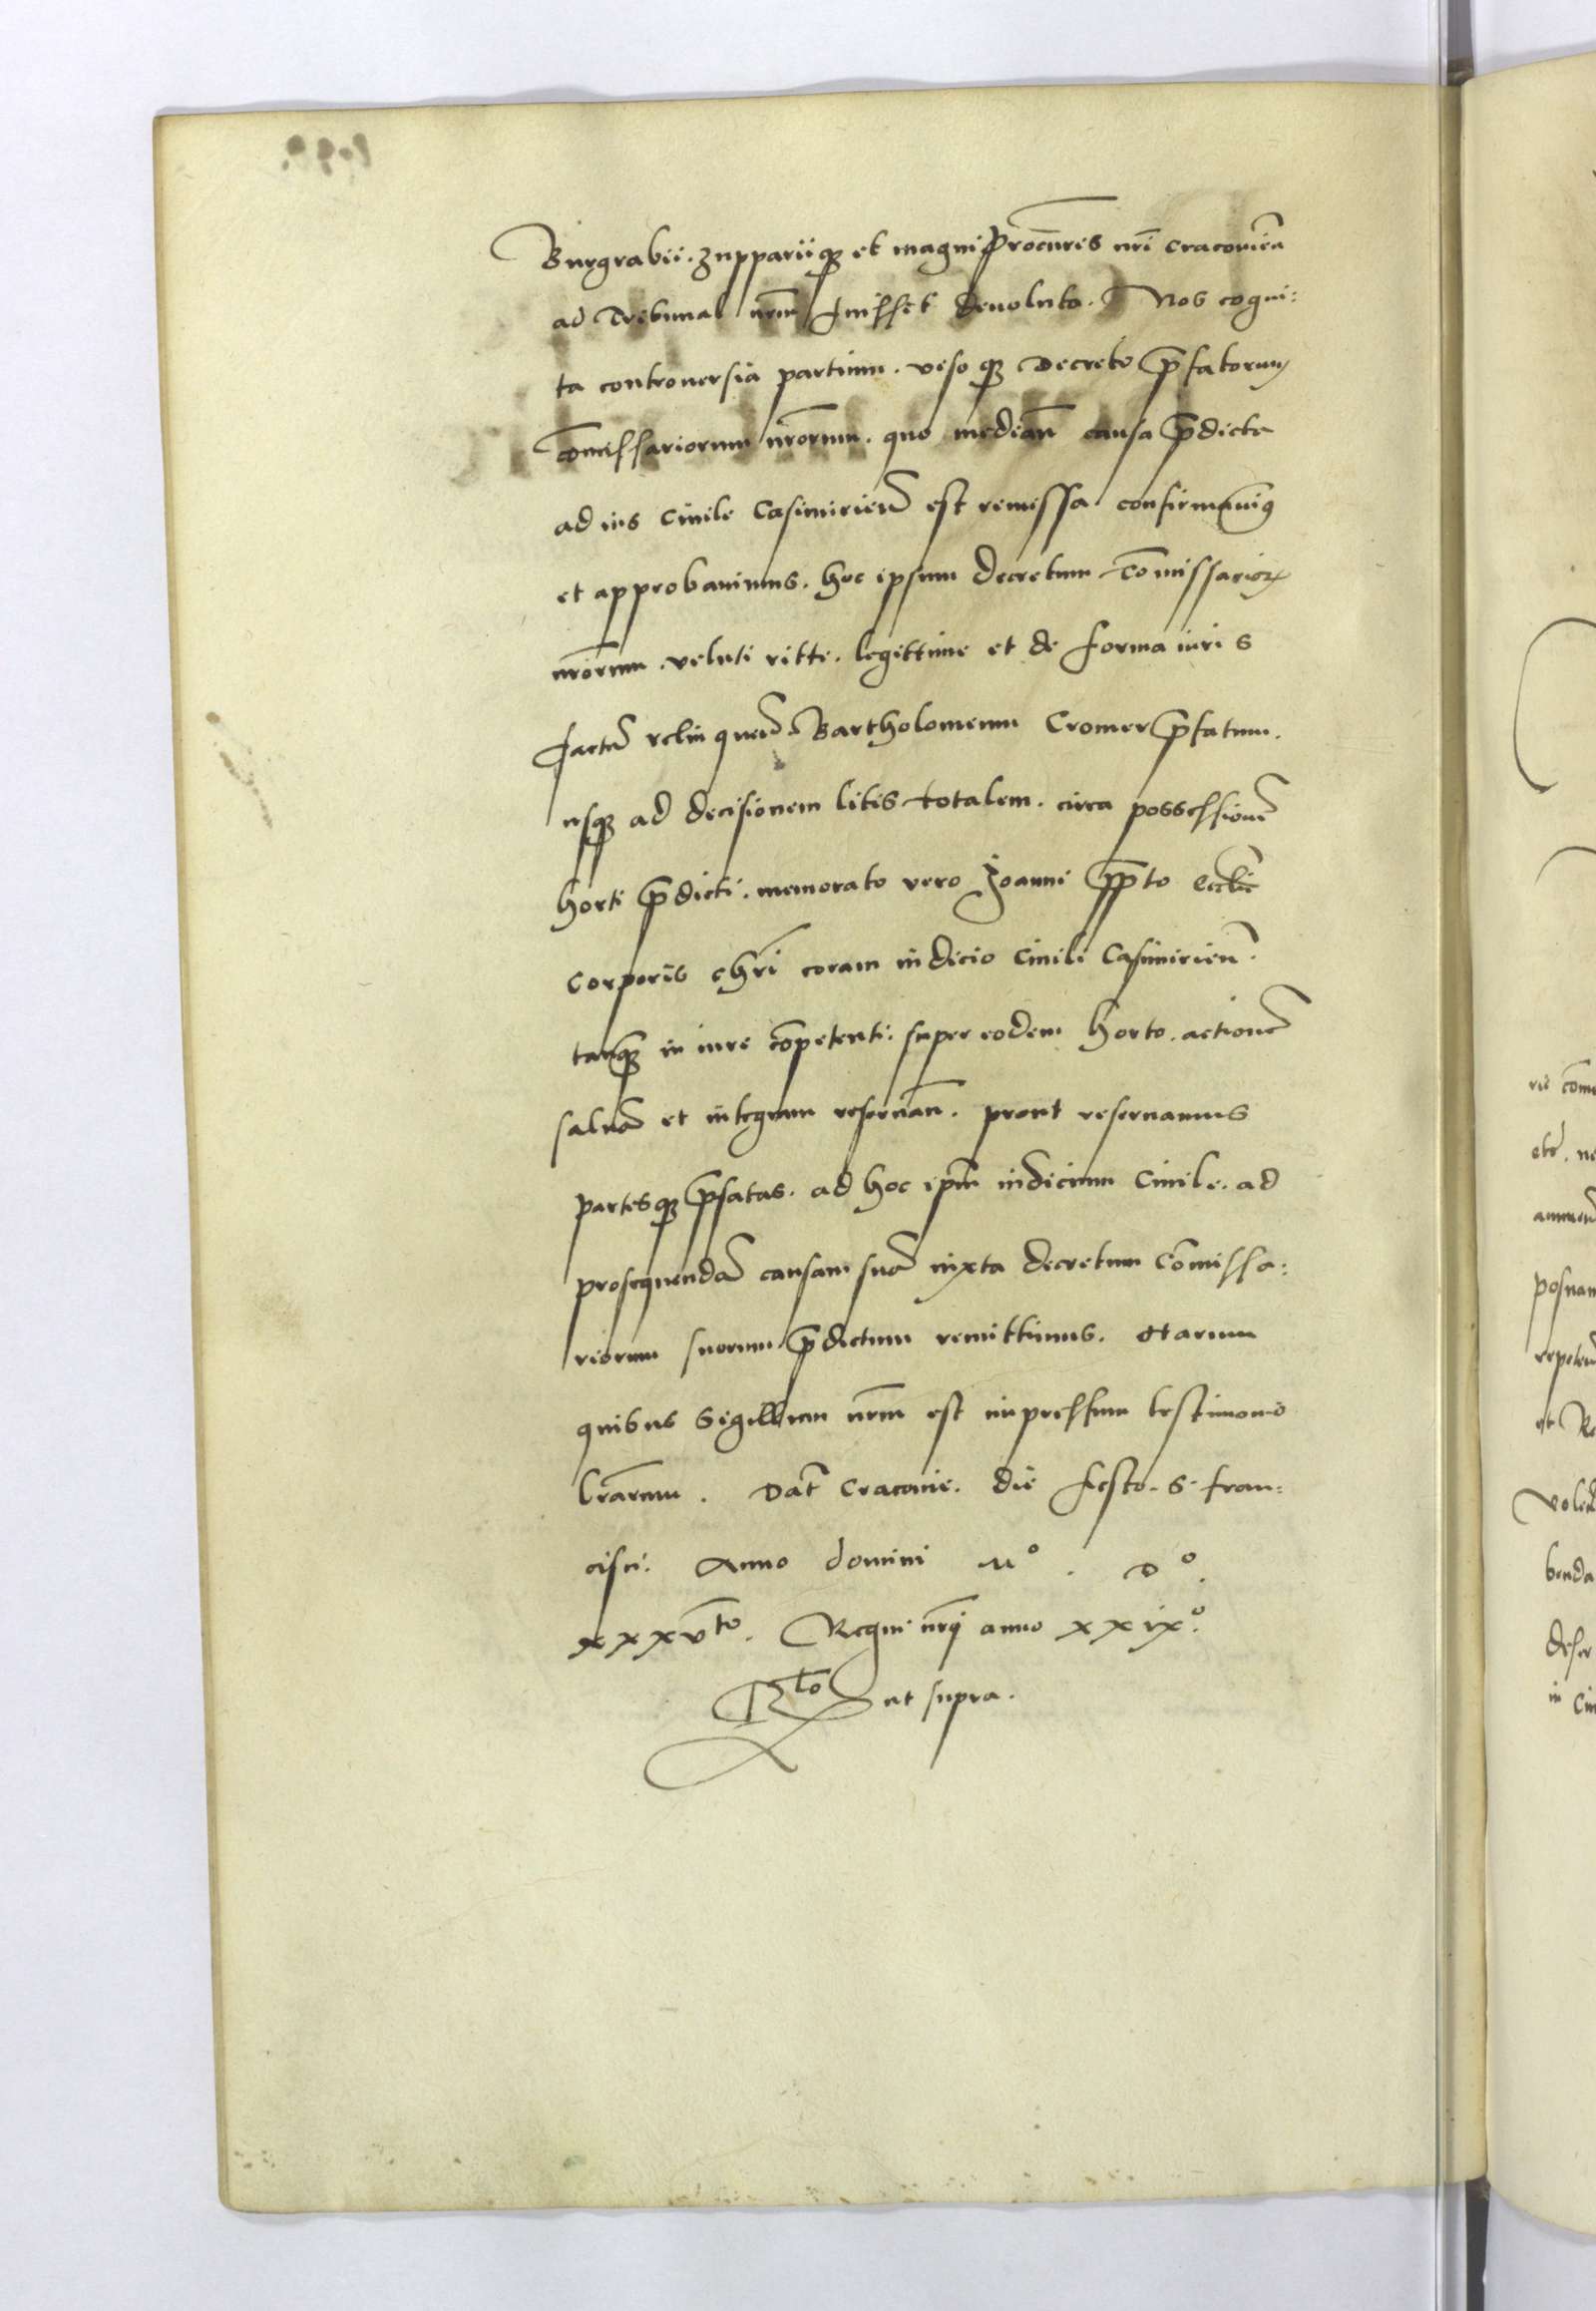 Burgrabii. zuppariiq₃ et magni procur̃is nr̃i cracouien̄
ad Tribunal nr̄m fuisset deuoluta. Nos cogni:
ta controuersia partium. viso q₃ decreto p̄fatorum
com̄issariorum nr̄orum. quo median̄ causa p̄dicta
ad ius Ciuile Casimirien̄ est remissa confirmauimꝰ
et approbauimus. hoc ipsum decretum com̄issarioꝝ
nr̄orum. veluti ritte. legittime et de forma iuris
factū relinquen̄. Bartholomeum Cromer p̄fatum.
usq₃ ad decisionem litis totalem. circa possessionē
horti p̄dicti. memorato vero Joanni p̄pto eccl̄ie
corporis chr̄i coram iudicio Ciuili Casimirien̄.
tanq̄₃ in iure cōpetenti. super eodem horto. actionē
saluā et integram reseruan̄. prout reseruamus
partesq₃ p̄fatas. ad hoc ip̄m iudicium Ciuile. ad
prosequendā causam suā iuxta decretum Com̄issa:
riorum suorum p̄dictum remittimus. Harum
quibus Sigillum nr̄m est impressum testimonio
lr̄arum. Dat̄ Cracouie. die festo. S. Fran:
cisci. Anno domini M°. D°.
xxxvto. Regni nr̄i anno xxix°.
Rto ut supra.